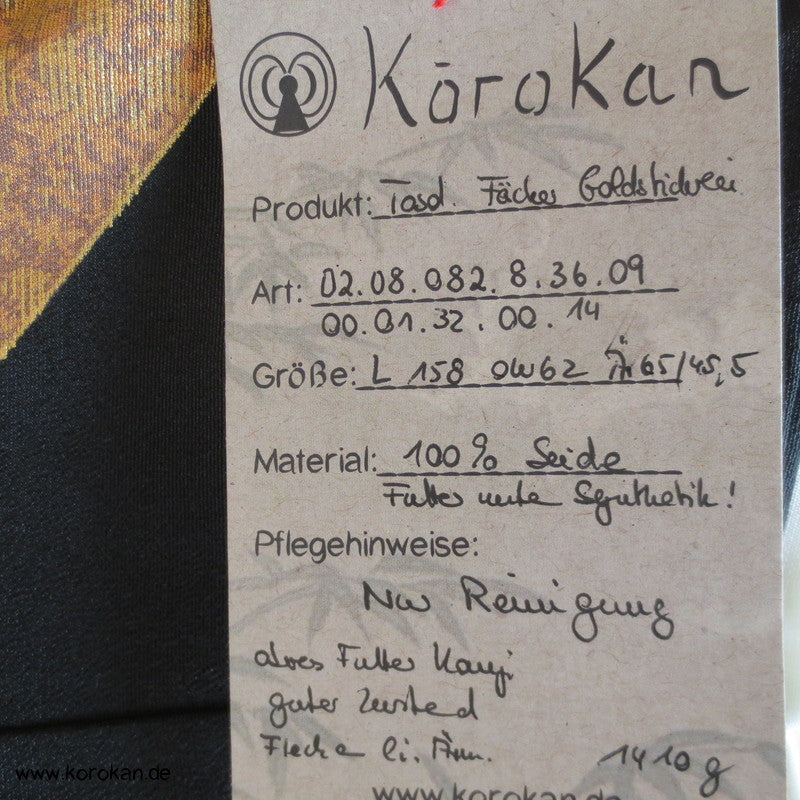 Kōrokan
Produkt: Fächer Goldstickerei
Art: 02.08.082.8.36.09
00.01.32.00.14
Größe: L 158 OW62 65/45,5
Material: 100% Seide
Futter unten Synthetik!
Pflegehinweise:
Nur Reinigung
oberes Futter Kanji
guter Zustand
Flecke li. Ärm.
1410g
www.korokan.de
www.korokan.de